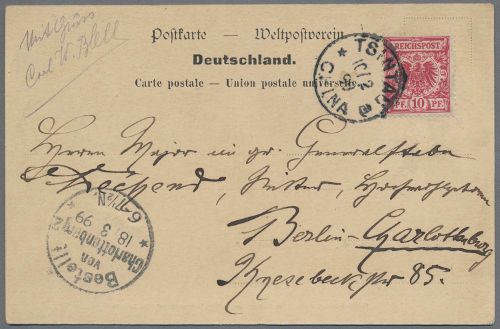 Mit Gruss
Carl W.
Postkarte — Weltpostverein
Deutschland.
Carte postale — Union postale universelle
REICHSPOST
PF. 10 PF.
TSINTAU
10/2
99
CHINA
Herrn Major im gr. Generalstabe
Ritter, Hochwohlgeboren
Berlin-Charlottenburg
Knesebeckstr 85.
Bestellt
von
Charlottenburg 2
18 3 99
6-7½N